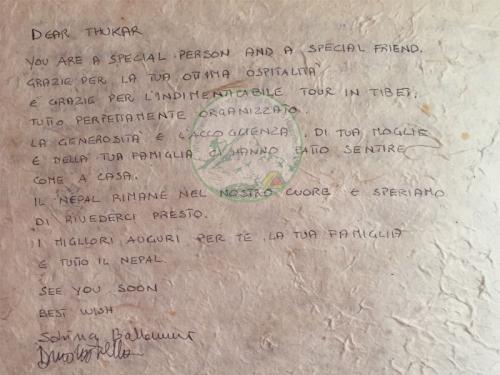 DEAR THUKAR
YOU ARE A SPECIAL PERSON AND A SPECIAL FRIEND.
GRAZIE PER LA TUA OTTIMA OSPITALITÀ
E GRAZIE PER L'INDIMENTICABILE TOUR IN TIBET,
TUTTO PERFETTAMENTE ORGANIZZATO.
LA GENEROSITÀ E L'ACCOGLIENZA DI TUA MOGLIE
E DELLA TUA FAMIGLIA CI HANNO FATTO SENTIRE
COME A CASA.
IL NEPAL RIMANE NEL NOSTRO CUORE E SPERIAMO
DI RIVEDERCI PRESTO.
I MIGLIORI AUGURI PER TE LA TUA FAMIGLIA
E TUTTO IL NEPAL.
SEE YOU SOON
BEST WISH
Sabrina